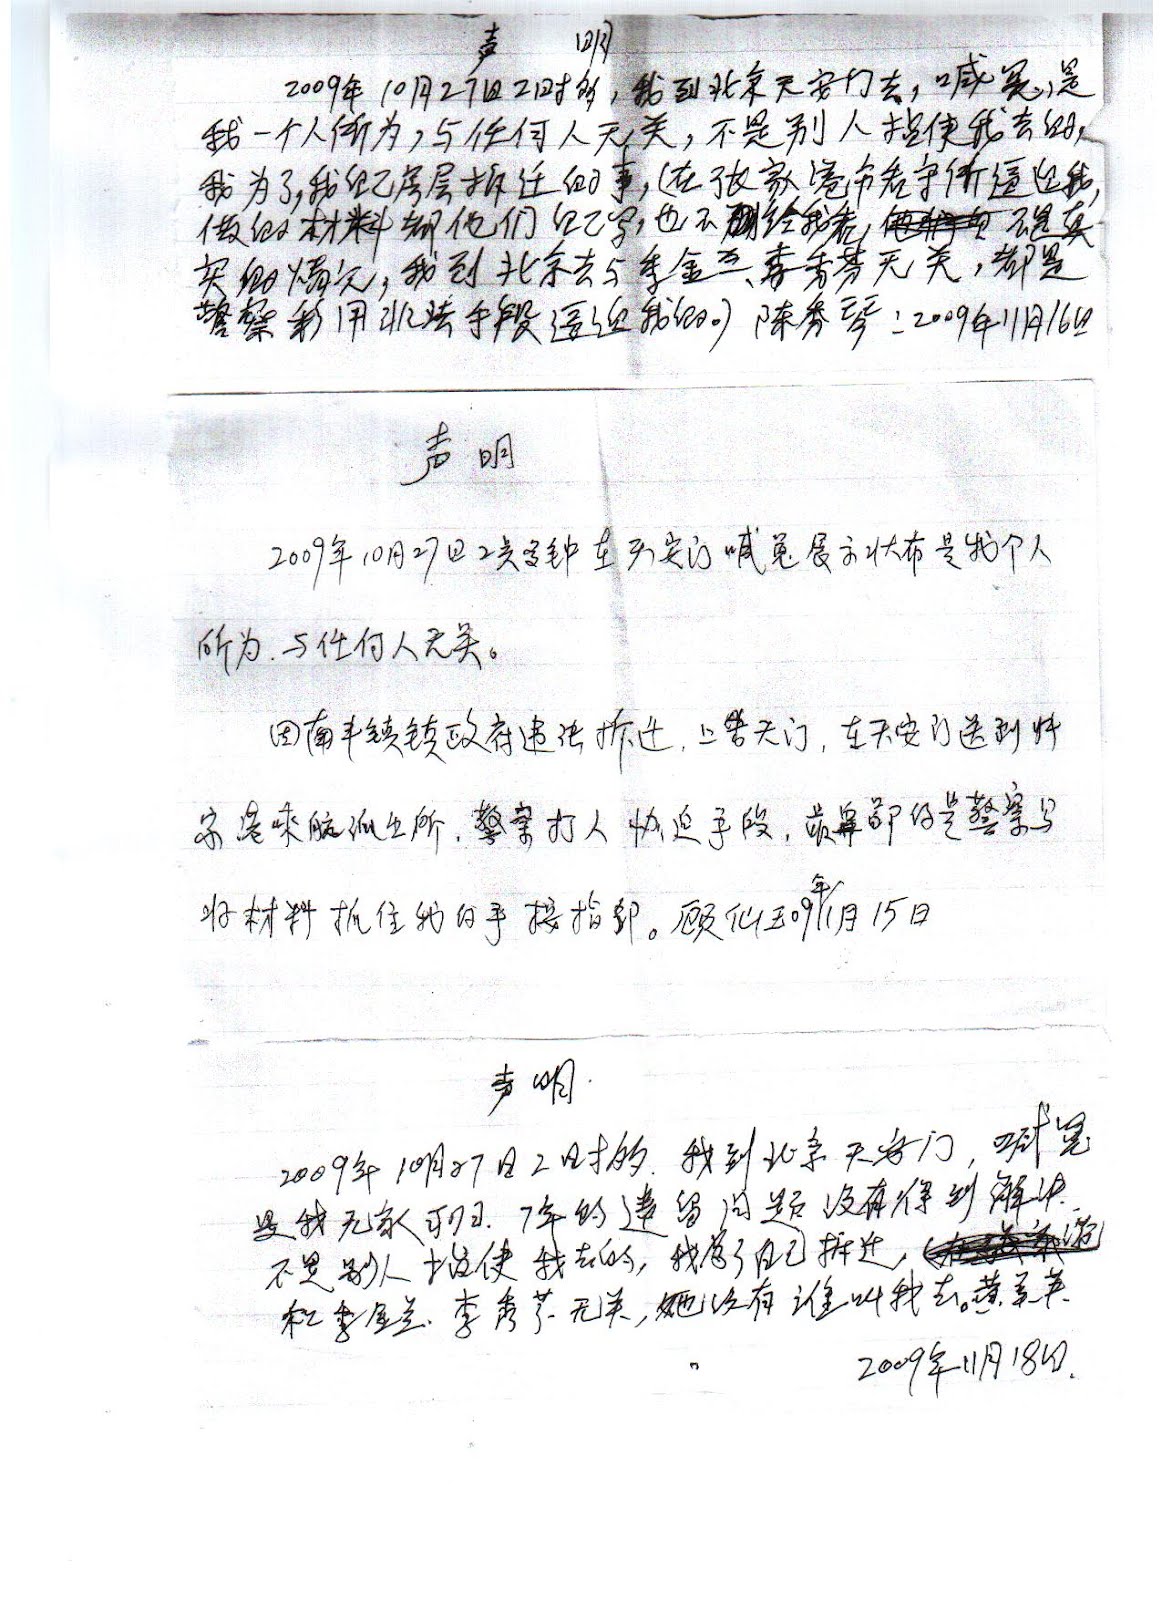 声 明
2009年10月27日2时多,我到北京天安门去,喊冤,是
我一个人所为,与任何人无关,不是别人指使我去的,
我为了,我自己房屋拆迁的事,(在张家港市看守所逼迫我,
做的材料都他们自己写,也不给我看,不是真
实的情况,我到北京去与季金兰、李秀芬无关,都是
警察利用非法手段逼迫我的。)陈秀琴:2009年11月16日
声明
2009年10月27日2点多钟在天安门喊冤展示状布是我个人
所为.与任何人无关。
因南丰镇镇政府违法拆迁,上告无门,在天安门送到张
家港派出所,警察打人胁迫手段,最卑鄙的是警察写
好材料抓住我的手按指印。顾仙玉09年11月15日
声明.
2009年10月27日2时多.我到北京天安门,喊冤
是我无家可归.7年的遗留问题没有得到解决.
不是别人指使我去的,我为了自己拆迁,
和季金兰.李秀芬无关,她没有谁叫我去。黄美英
2009年11月18日.